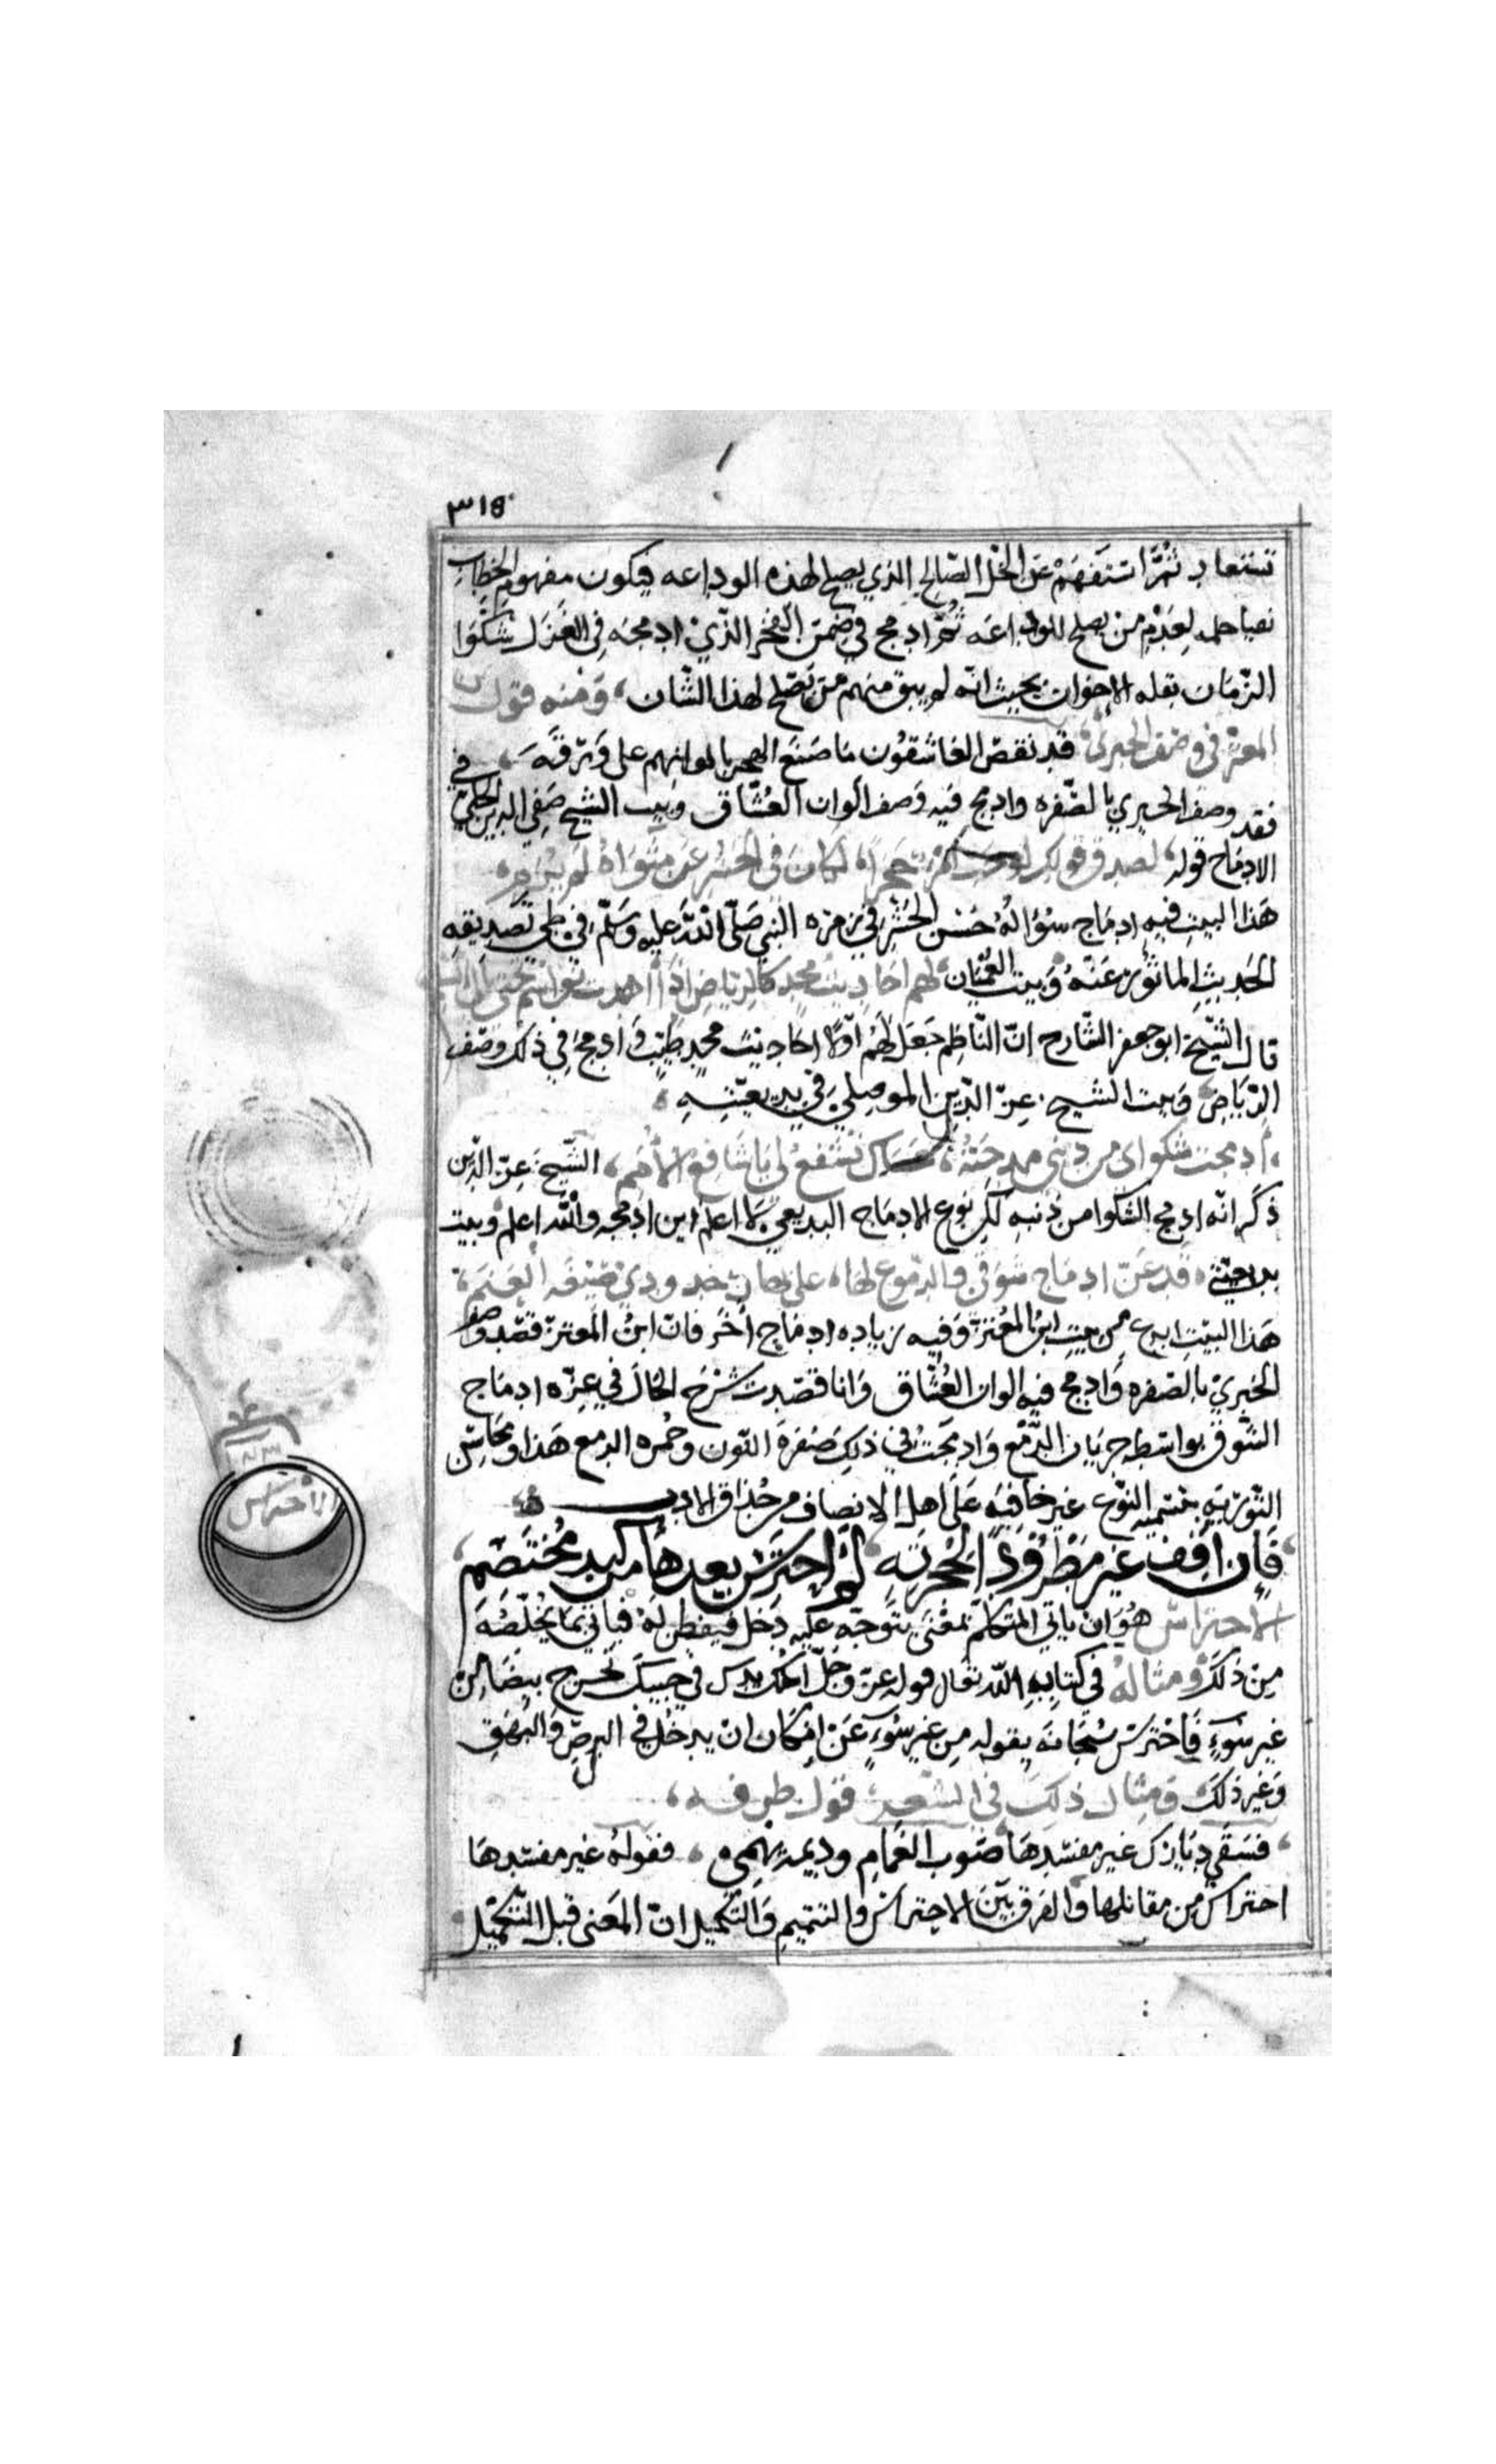 ٣١٥
تستعاد ثُمَّ استفهم عن الخل الصالح الذي يصلح لهذه الوداعه فيكون مفهوم الخطاب
بقيا حلمه لعدم من يصلح للوداعه ثُمَّ ادمج في ضمن الفخر الذّي ادمجه في الغزل شكوا
الزّمان بقله الاخوان بحيث انّه لم يبق منهم من يصلح لهذا الشان، ومنه قول ابن
المعتز في وصف الخيري، قد نقض العاشقون ما صنع الهجر بالوانهم على ورقه،
فقد وصف الخيري بالصّفره وادمج فيه وصف الوان العُشّاق وبيت الشيخ صفي الدين الحلي في
الادماج قوله، لصدق قولك لو حب امرء حجرا، لكان في الحشر عن مثواه لم يرم،
هذا البيت فيه ادماج سؤاله حسن الحشر في زمره النبي صلّى الله عليه وسلّم في طي تصديقه
الحديث الماثور عنه وبيت العميان، لهم احاديث مجد كالرياض اذا اهدت نواسم
قال الشّيخ ابو جعفر الشّارح انّ النّاظم جعل لهم اوّلا احاديث مجد طيب وادمج في ذلك وصف
الرّياض وبيت الشيخ عزّ الدّين الموصلي في بديعيّته،
، ادمجت شكواي من ذنبي ومدحته، عساك تشفع لي يا شافع الامم، الشّيخ عزّ الدّين
ذكر انّه ادمج الشكوا من ذنبه لكن نوع الادماج البديعي لا اعلم اين ادمجه والله اعلم وبيت
بديعيتي، قد عزّ ادماج شوقي والدموع لها، على بهار خدودي صبغة العنم،
هذا البيت ابدع من بيت ابن المعتز وفيه زياده ادماج آخر فان ابن المعتز قصد وصف
الخيري بالصفره وادمج فيه الوان العُشّاق وانا قصدت شرح الحال في عزّه ادماج
الشّوق بواسطه جريان الدّمع وادمجت في ذلك صُفرة اللّون وحُمره الدمع هذا ومحاسن
التّوريه بتسميه النّوع غير خافيه على اهل الانصاف من حُذاق الادب
، فإن اقف غير مطرُود الحُجرته، لم احترس بعدها من كيد مُختصم،
الاحتراس هُو ان ياتي المتكلّم بمعنى يتوجّه عليه دخل فيفطن له فياتي بما يُخلّصه
من ذلك ومثاله في كتاب الله تعالى قوله عزّ وجلّ اسلك يدك في جيبك تخرج بيضاء من
غير سوءٍ فاحترس سُبحانه بقوله من غير سُوءٍ عن امكان ان يدخل في البرص والبهق
وغير ذلك ومثال ذلك في الشعر قول طرفه،
، فسقى ديارك غير مفسدها صوب الغمام وديمة تهمي، فقوله غير مفسدها
احتراس من مقابلها والفرق بين الاحتراس والتتميم والتكميل ان المعنى قبل التكميل
الاحتراس